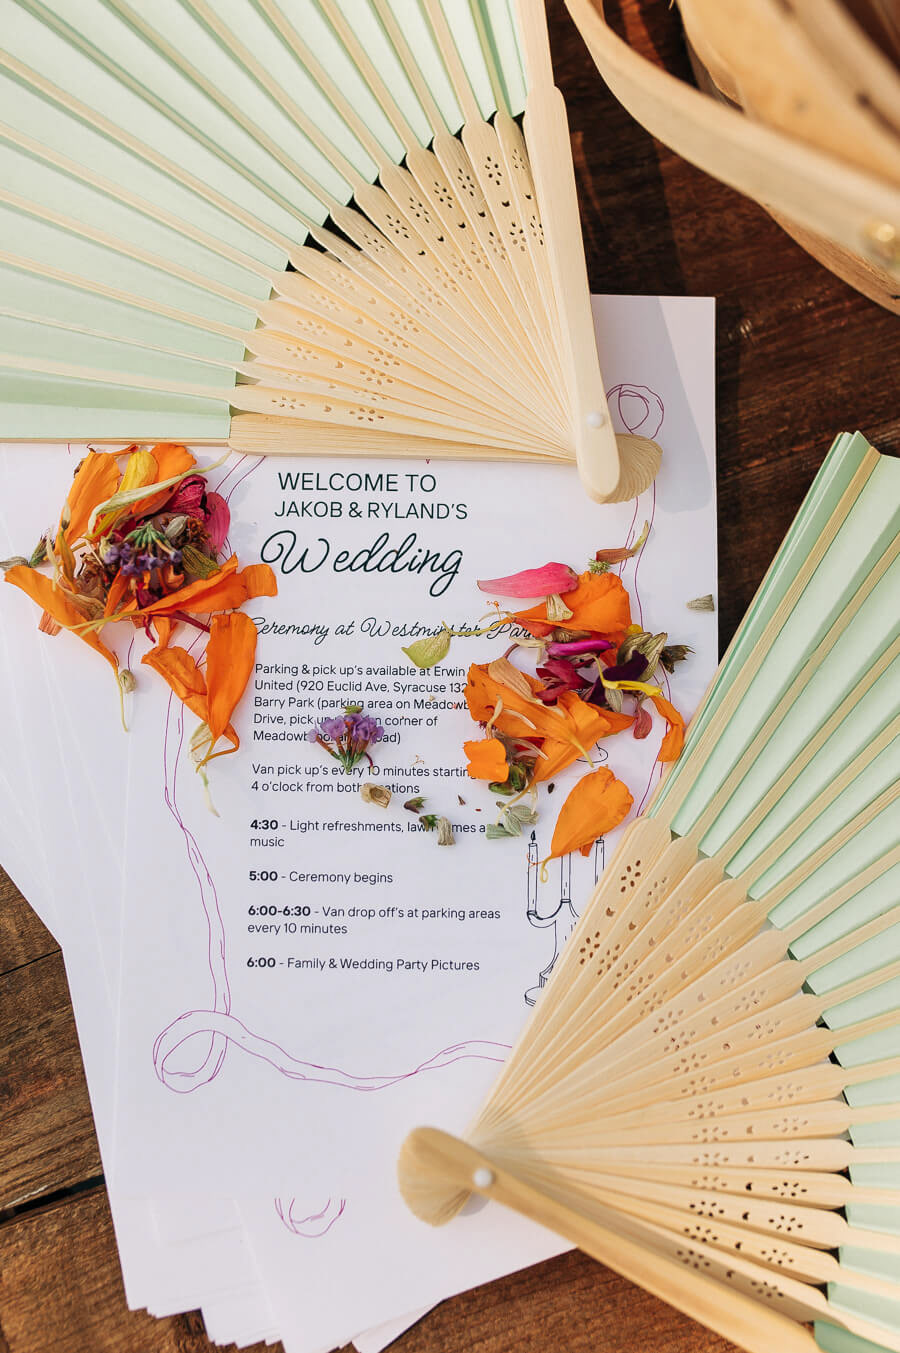 WELCOME TO
JAKOB & RYLAND'S
Wedding
Ceremony at Westminster Park
Parking & pick up's available at Erwin
United (920 Euclid Ave, Syracuse 132
Barry Park (parking area on Meadowb
Drive, pick up on corner of
Meadowb road)
Van pick up's every 10 minutes starting
4 o'clock from both locations
4:30 - Light refreshments, lawn games a
music
5:00 - Ceremony begins
6:00-6:30 - Van drop off's at parking areas
every 10 minutes
6:00 - Family & Wedding Party Pictures